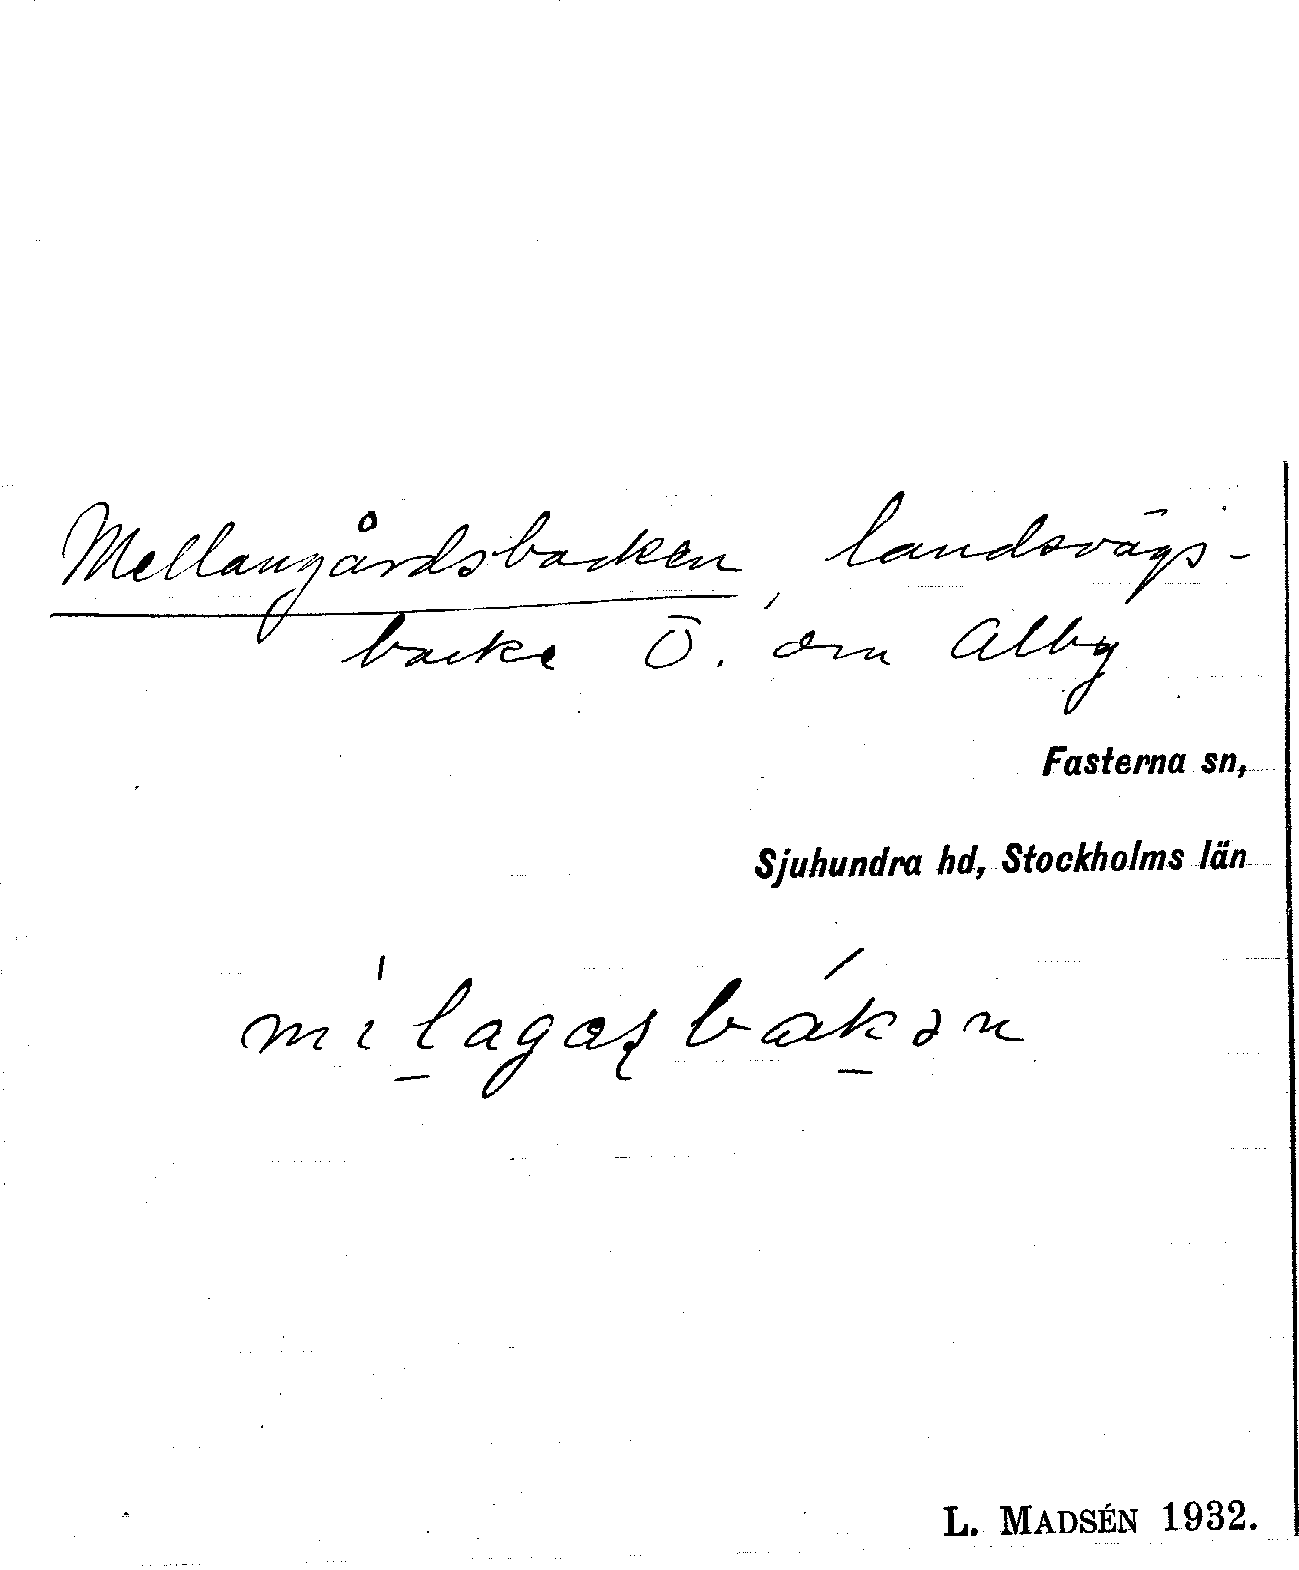 Mellangårdsbacken, landsvägs-
backe Ö. om Alby
Fasterna sn,
Sjuhundra hd, Stockholms län
mílagaʂbákən
L. MADSÉN 1932.